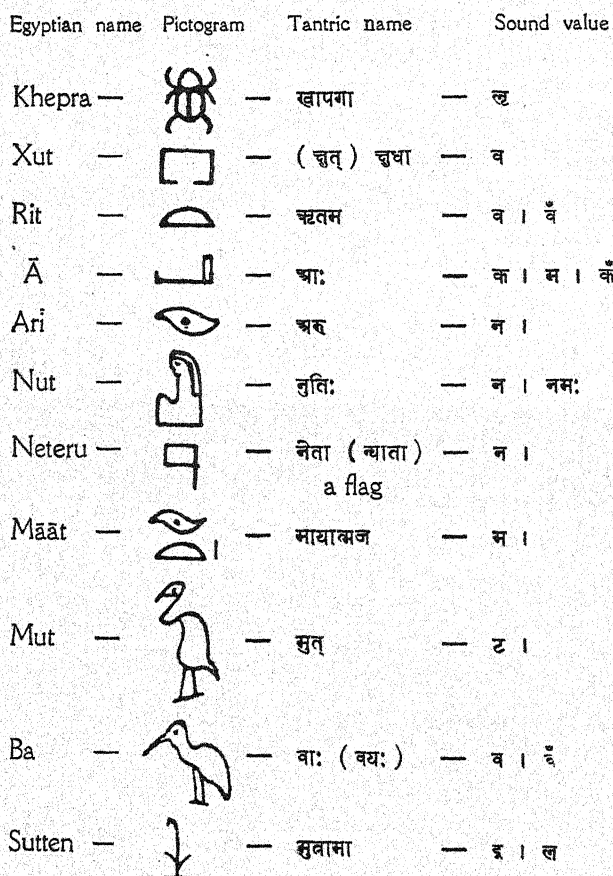 Egyptian name Pictogram Tantric name Sound value
Khepra — — खापगा — ऌ
Xut — — ( च्चुत् ) च्चुधा — व
Rit — — ऋतम — व । वँ
Ā — — आः — क । म । कँ
Ari — — अरु — न ।
Nut — — नुतिः — न । नमः
Neteru — — नेता ( न्याता ) — न ।
a flag
Māāt — — मायात्मज — म ।
Mut — — मुत् — ट ।
Ba — — वाः ( वयः ) — व । वँ
Sutten — — सुत्नामा — इ । ल